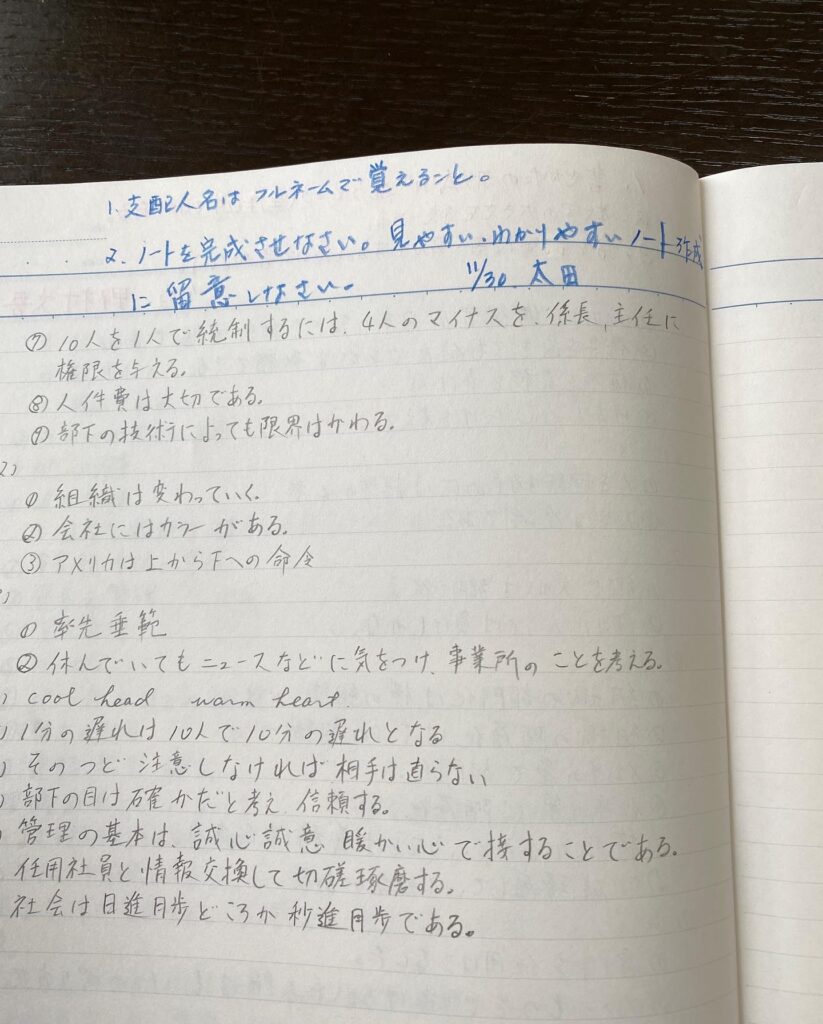 1. 支配人名はフルネームで覚えること。
2. ノートを完成させなさい。見やすい、わかりやすいノート作成
に留意しなさい。 11/30 太田
⑦ 10人を1人で統制するには、4人のマイナスを、係長、主任に
権限を与える。
⑧ 人件費は大切である。
⑨ 部下の技術によっても限界はかわる。
2)
① 組織は変わっていく。
② 会社にはカラーがある。
③ アメリカは上から下への命令
)
① 率先垂範
② 休んでいてもニュースなどに気をつけ、事業所のことを考える。
) cool head warm heart.
) 1分の遅れは10人で10分の遅れとなる
) そのつど注意しなければ相手は直らない
) 部下の目は確かだと考え、信頼する。
) 管理の基本は、誠心誠意 暖かい心で接することである。
任用社員と情報交換して切磋琢磨する。
社会は日進月歩どころか秒進月歩である。